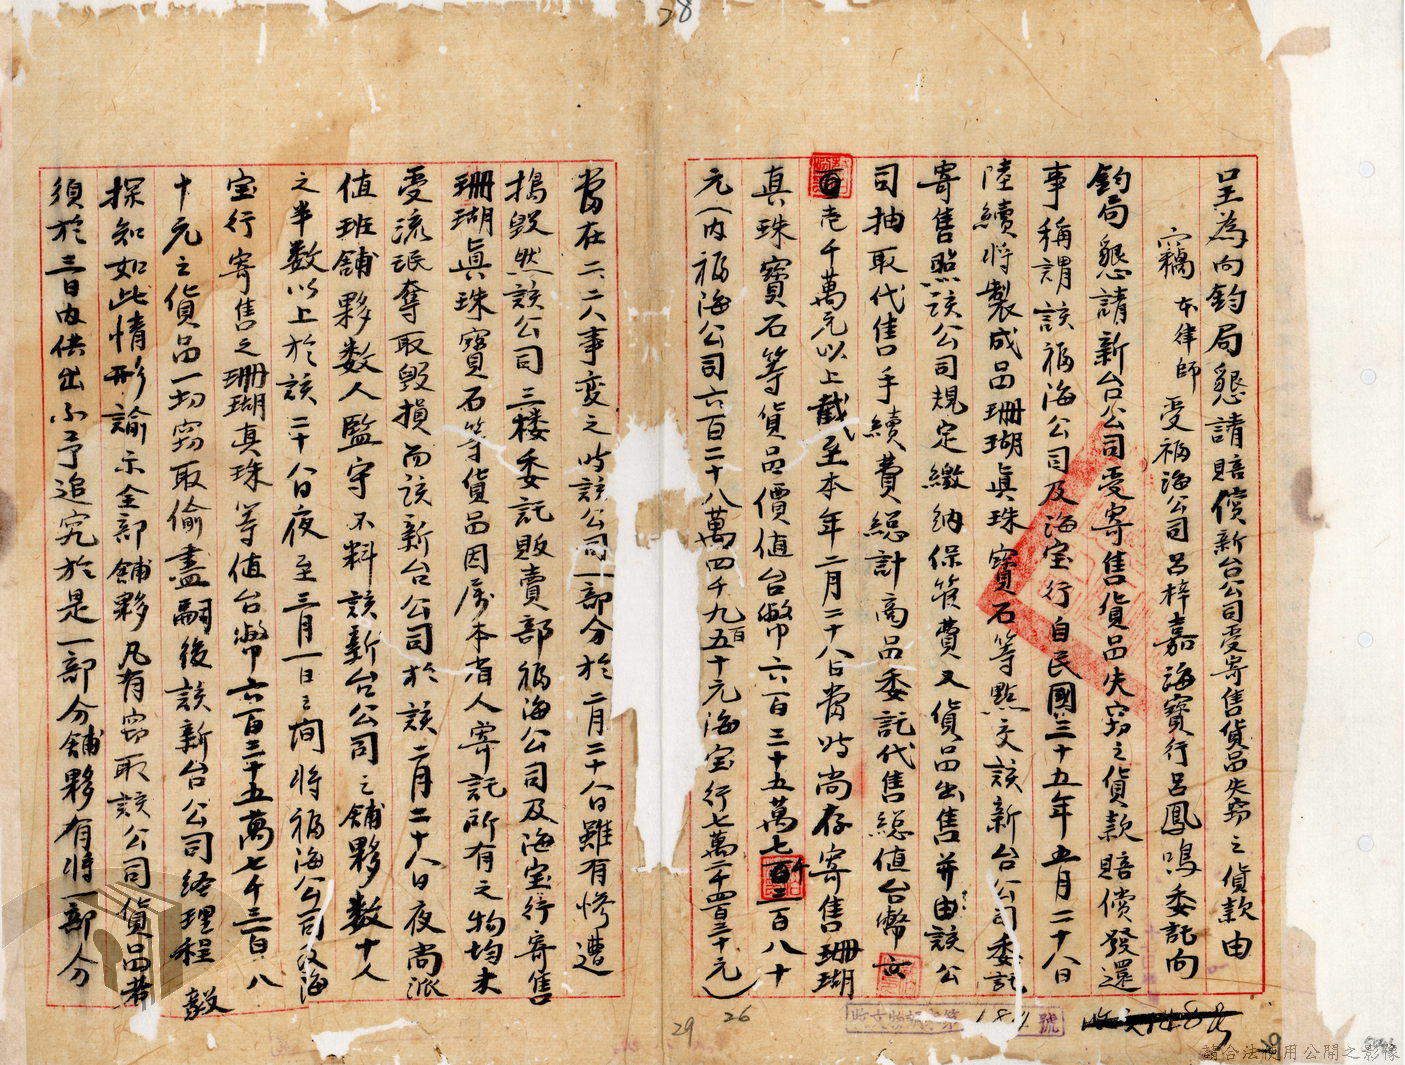 28
呈為向鈞局懇請賠償新台公司受寄售貨品失窃之貨款由
竊本律師受福海公司呂梓嘉海寶行呂鳳鳴委託向
鈞局懇請新台公司受寄售貨品失窃之貨款賠償發還
事稱謂該福海公司及海宝行自民國三十五年五月二十八日
陸續將製成品珊瑚眞珠寶石等點交該新台公司委託
寄售照該公司規定繳納保管費又貨品出售並由該公
司抽取代售手續費總計商品委託代售総值台幣
壱千萬元以上截至本年二月二十八日當時尚存寄售珊瑚
真珠寶石等貨品價值台幣六百三十五萬七千三百八十
元(内福海公司六百二十八萬四千九百五十元海宝行七萬二千四百三十元)
當在二、二八事変之時該公司一部分於二月二十八日雖有慘遭
搗毀然該公司三楼委託販賣部福海公司及海宝行寄售
珊瑚眞珠寶石等貨品因属本省人寄託所有之物均未
受流氓奪取毀損而該新台公司於該二月二十八日夜尚派
值班舖夥数人監守不料該新台公司之舖夥数十人
之半数以上於該二十八日夜至三月一日之間將福海公司及海
宝行寄售之珊瑚真珠等值台幣六百三十五萬七千三百八
十元之貨品一切窃取偷盡嗣後該新台公司経理程毅
探知如此情形諭示全部舖夥凡有窃取該公司貨品者
須於三日内供出不予追究於是一部分舖夥有將一部分
26
29
號
請合法使用公開之影像